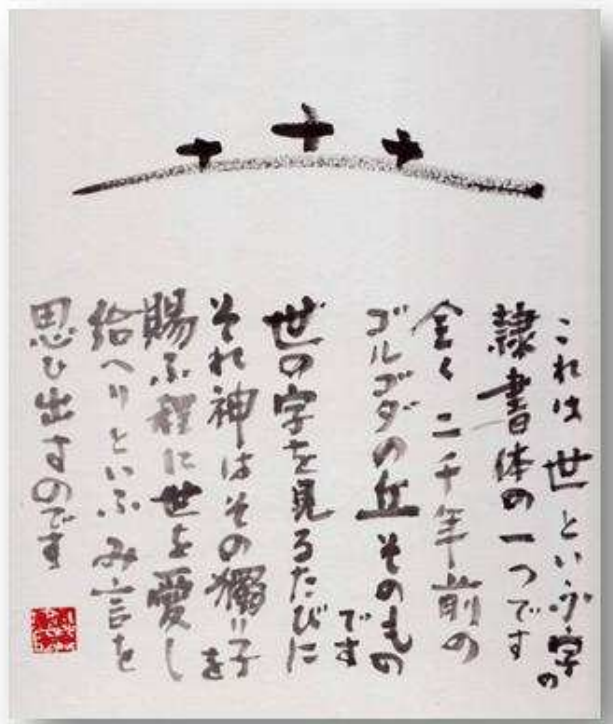 これは世という字の
隷書体の一つです
全く二千年前の
ゴルゴダの丘そのもの
です
世の字を見るたびに
それ神はその獨り子を
賜ふ程に世を愛し
給へりといふみ言を
思ひ出すのです